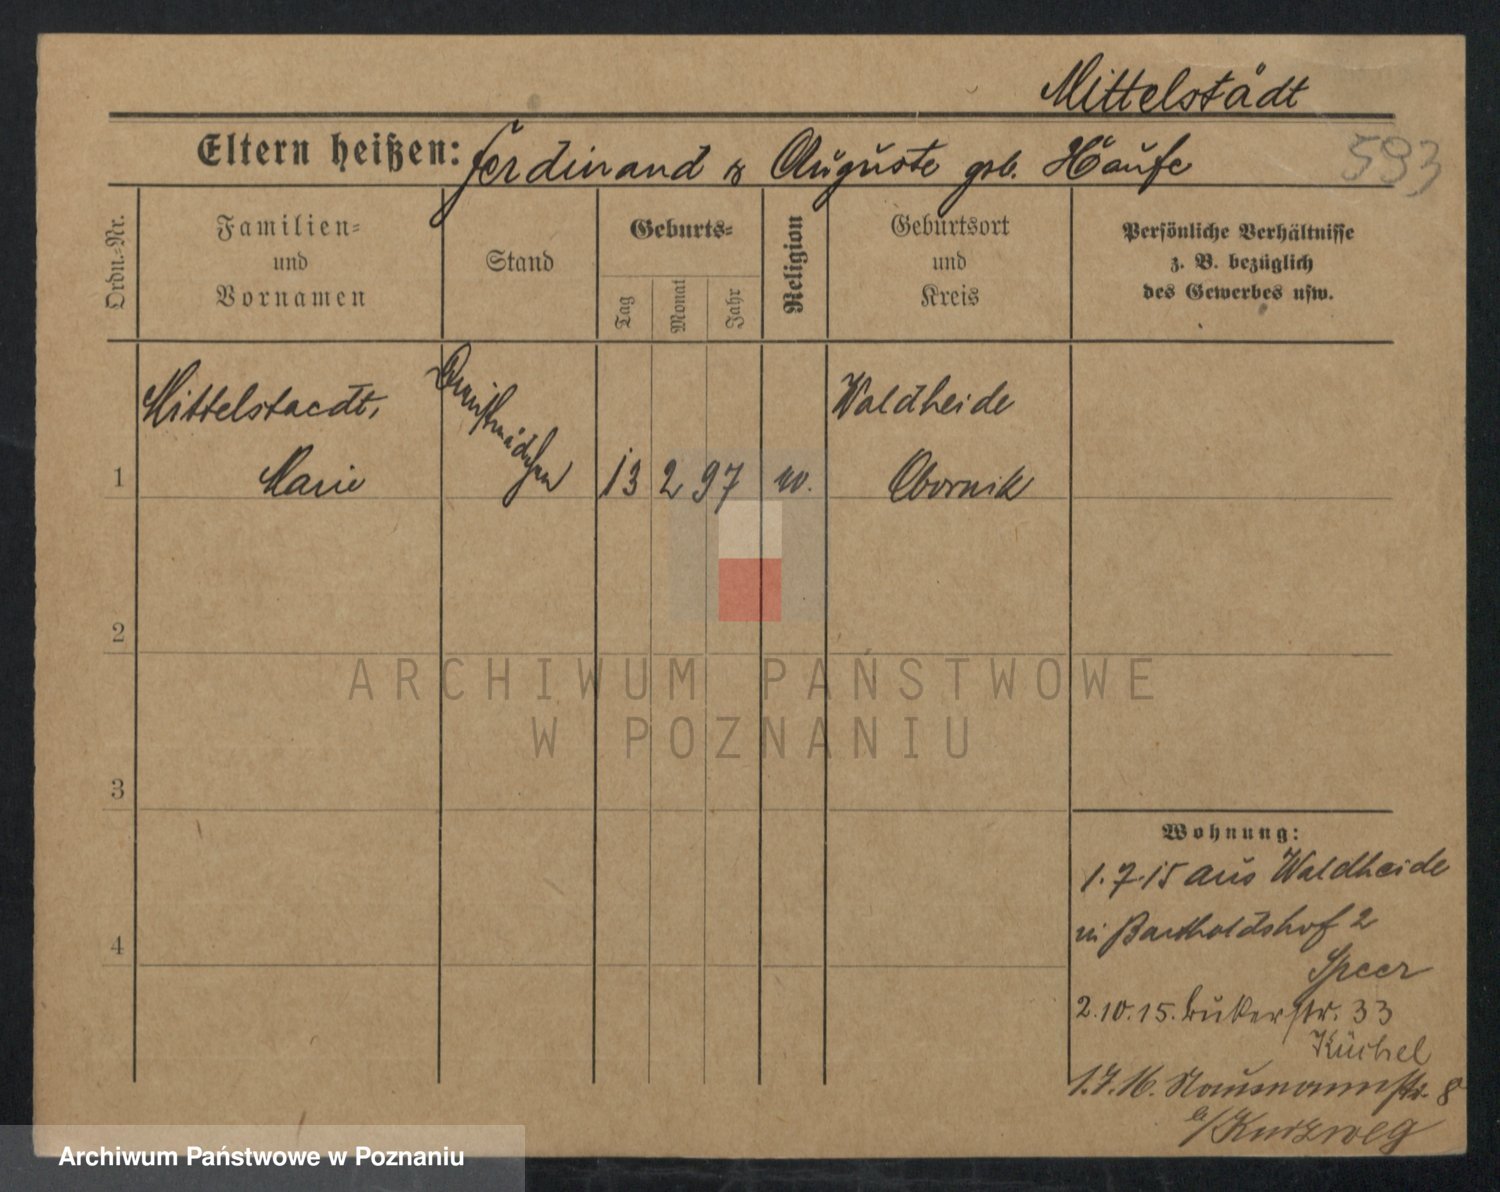 Mittelstädt
593
Eltern heißen: Ferdinand & Auguste geb. Haufe
Ordn.-Nr.
Familien-
und
Vornamen
Stand
Geburts-
Tag
Monat
Jahr
Religion
Geburtsort
und
Kreis
Persönliche Verhältnisse
z. B. bezüglich
des Gewerbes usw.
1
Mittelstaedt,
Marie
Dienstmädchen
13 2 97
Waldheide
Obornik
2
3
4
Wohnung:
1.7.15 aus Waldheide
in Bartholdshof 2
Speer
2.10.15. 33
Küchel
1.7.16. Naumannstr. 8
b/Kurzweg
ARCHIWUM PAŃSTWOWE
W POZNANIU
Archiwum Państwowe w Poznaniu